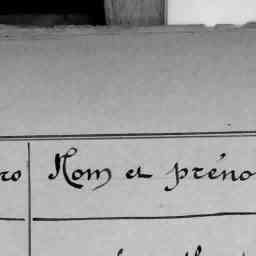 ro Nom et préno